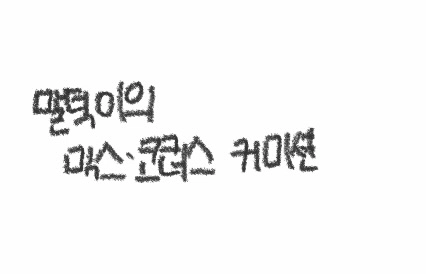 말덕이의
믹스·코러스 커미션